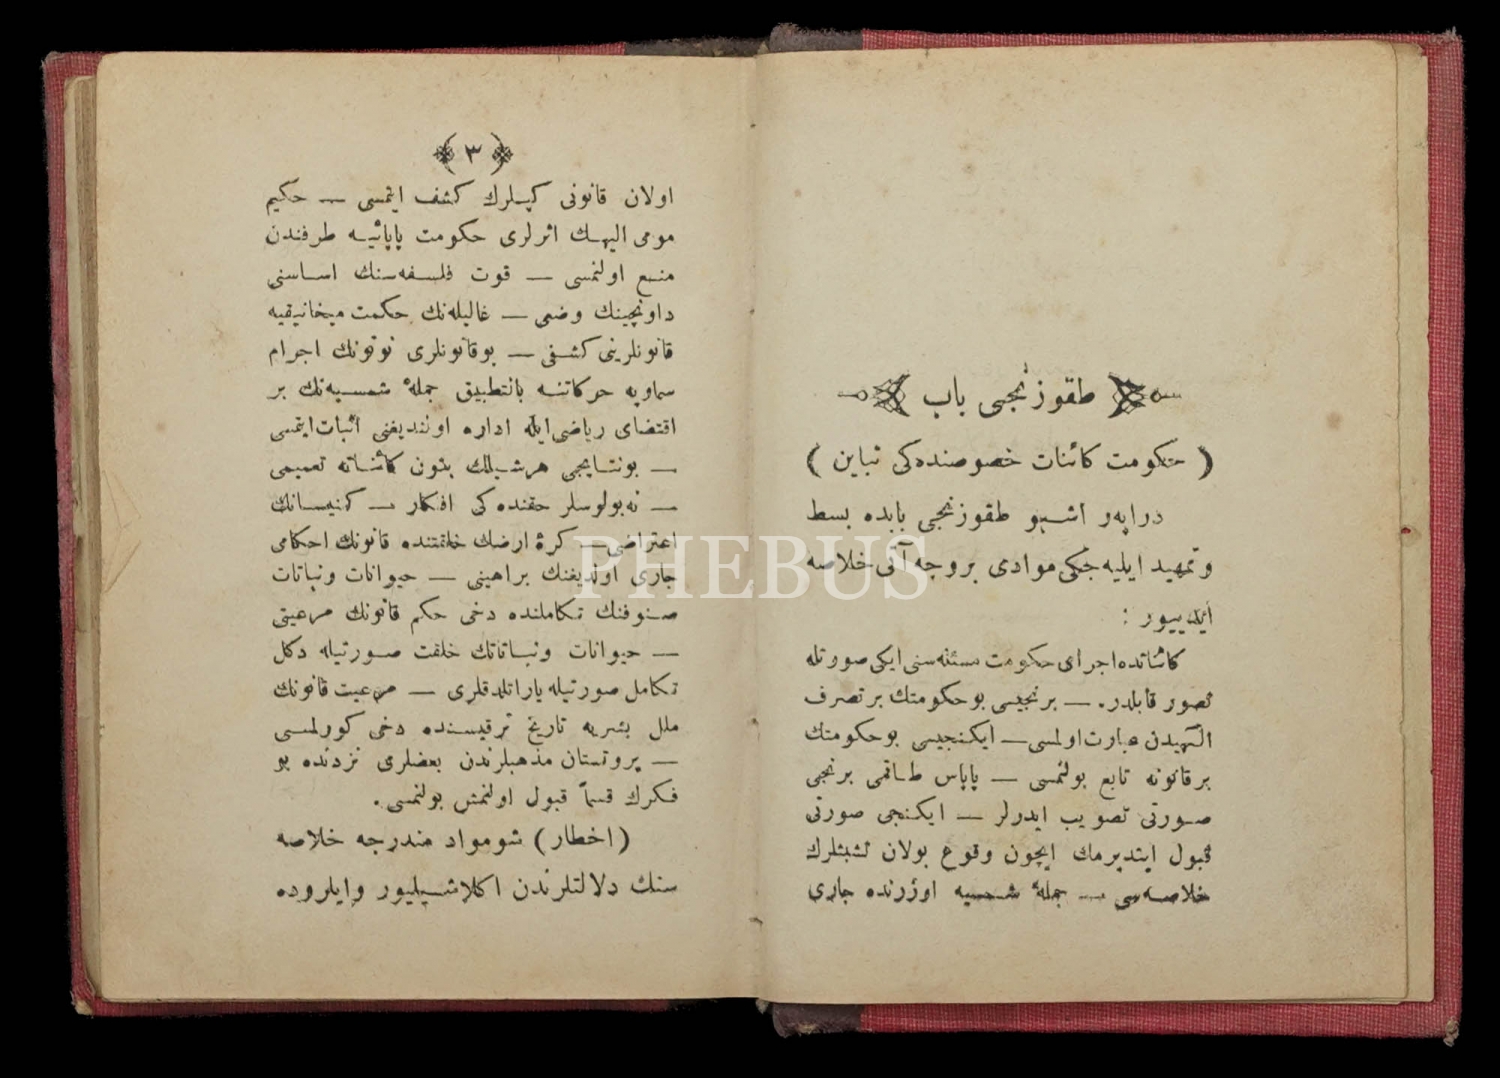 طقوزنجی باب
( حکومت کائنات خصوصنده‌کی تباین )
دراپه‌ر اشبو طقوزنجی بابده بسط
و تمهید ایلیه‌جکی موادی بروجه آتی خلاصه
ایدییور :
کائناتده اجرای حکومت مسئله‌سنی ایکی صورتله
تصور قابلدر. — برنجیسی بو حکومتك بر تصرف
الٓهیدن عبارت اولمسی — ایکنجیسی بو حکومتك
بر قانونه تابع بولنمسی — پاپاس طاقمی برنجی
صورتی تصویب ایدرلر — ایکنجی صورتی
قبول ایتدیرمك ایچون وقوع بولان تشبثلرك
خلاصه‌سی — جملهٔ شمسیه اوزرنده جاری
﴿ ٣ ﴾
اولان قانونی کپلرك کشف ایتمسی — حکیم
مومی الیهك اثرلری حکومت پاپائیه طرفندن
منع اولنمسی — قوت فلسفه‌سنك اساسنی
داونچینك وضعی — غالیله‌نك حکمت میخانیقیه
قانونلرینی کشفی — بو قانونلری نوتونك اجرام
سماویه حرکاتنه بالتطبیق جملهٔ شمسیه‌نك بر
اقتضای ریاضی ایله اداره اولندیغنی اثبات ایتمسی
— بونتایجی هرشیلك بتون کائناته تعمیمی
— نه‌بولوسلر حقنده‌کی افکار — کنیسانك
اعتراضی — کرهٔ ارضك خلقتنده قانونك احکامی
جاری اولدیغنك براهینی — حیوانات و نباتات
صنوفنك تکاملنده دخی حکم قانونك مرعیتی
— حیوانات و نباتاتك خلقت صورتیله دکل
تکامل صورتیله یارادلدقلری — مرعیت قانونك
ملل بشریه تاریخ ترقیسنده دخی کورلمسی
— پروتستان مذهبلرندن بعضلری نزدنده بو
فکرك قسماً قبول اولنمش بولنمسی .
( اخطار ) شو مواد مندرجه خلاصه
سنك دلالتلرندن اکلاشیلیور و ایلروده
PHEBUS